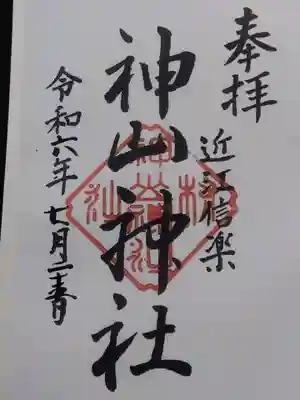 奉拝
近江信楽
神山神社
令和六年七月二十春日